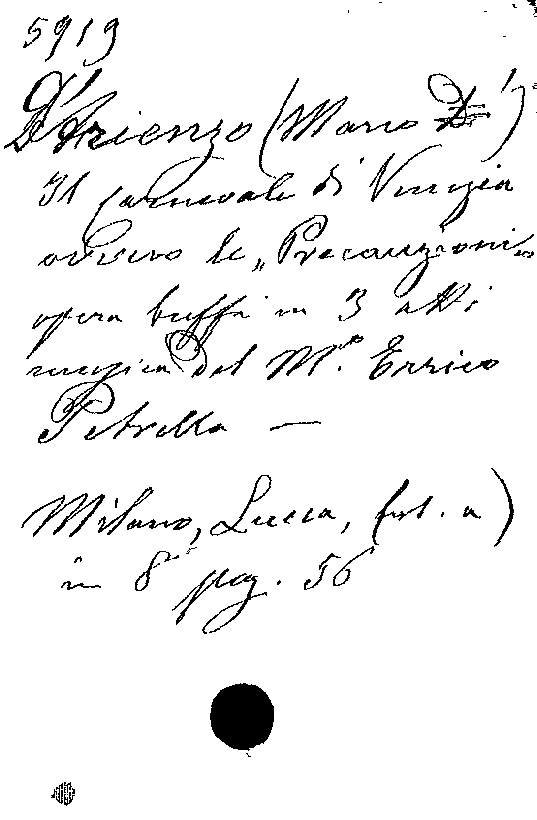 5919
D'Arienzo (Marco D')
Il Carnevale di Venezia
ovvero le „Precauzioni„
opera buffa in 3 atti
musica del M.º Errico
Petrella —
Milano, Lucca, (s. a)
in 8º pag. 56